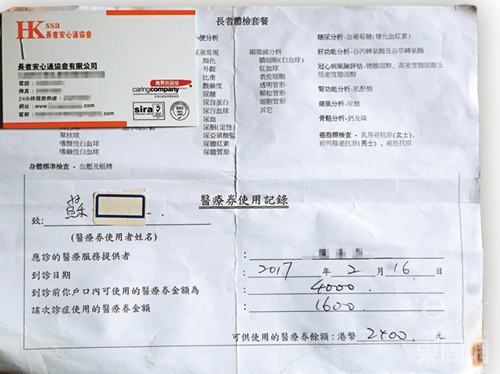 HKssa
長者安心通協會
長者安心通協會有限公司
電話：
傳真：
24小時服務熱線：
網址：www.
電郵：
caringcompany
sira
長者體檢套餐
便分析
尿液常規
顏色
外觀
比重
酸鹼度
尿糖
尿蛋白
尿白血球
尿血
尿酮(定性)
尿亞硝酸鹽
尿膽紅素
尿膽質原
單核球
嗜酸性白血球
嗜鹼性白血球
顯微鏡分析
積細胞(白血球)
紅血球
表皮細胞
透明管形
顆粒管形
細菌
其它
糖尿分析 - 血葡萄糖(糖化血紅素)
肝功能分析 - 谷丙轉氨酶及谷草轉氨酶
冠心病風險評估 - 總膽固醇、高密度膽固醇及
低密度膽固醇
腎功能分析 - 肌酐酸
痛風分析 - 尿酸
骨骼分析 - 鈣及磷
癌指標檢查 - 乳房癌抗原(女士)、
前列腺癌抗原(男士)、癌胚抗原
身體標準檢查 - 血壓及脈搏
醫療券使用記錄
致： 蘇
(醫療券使用者姓名)
應診的醫療服務提供者 ：
到診日期 ： 2017 年 2 月 16 日
到診前你戶口內可使用的醫療券金額為 ： 4000
該次診症使用的醫療券金額 ： 1600
可供使用的醫療券餘額：港幣 2400 元